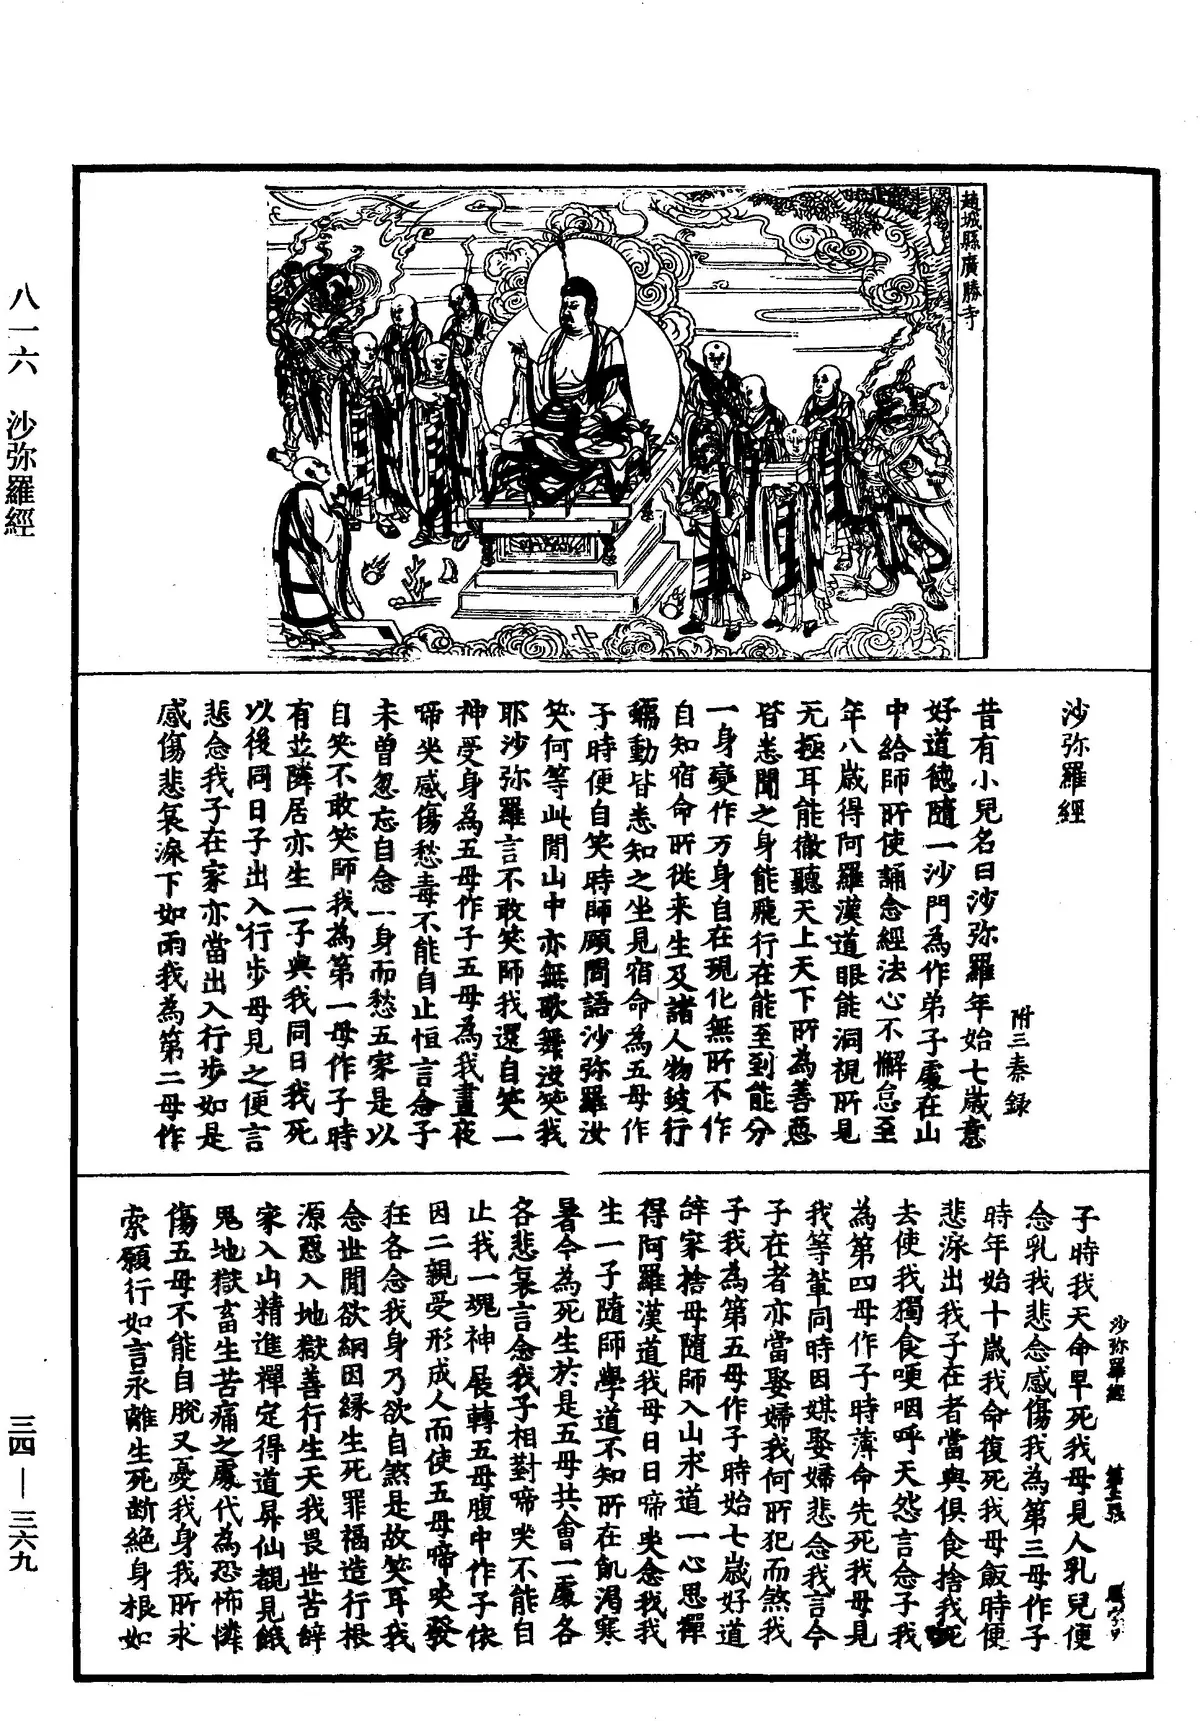 八一六　沙弥羅經
趙城縣廣勝寺
沙弥羅經
附三秦録
昔有小兒名曰沙弥羅年始七歲意
好道德隨一沙門為作弟子處在山
中給師所使誦念經法心不懈怠至
年八歲得阿羅漢道眼能洞視所見
无極耳能徹聽天上天下所為善惡
皆悉聞之身能飛行在能至到能分
一身變作万身自在現化無所不作
自知宿命所從来生及諸人物蚑行
蠕動皆悉知之坐見宿命為五母作
子時便自笑時師顧問語沙弥羅汝
笑何等此閒山中亦無歌舞汝笑我
耶沙弥羅言不敢笑師我還自笑一
神受身為五母作子五母為我晝夜
啼哭感傷愁毒不能自止恒言念子
未曽忽忘自念一身而愁五家是以
自笑不敢笑師我為第一母作子時
有並隣居亦生一子與我同日我死
以後同日子出入行步母見之便言
悲念我子在家亦當出入行步如是
感傷悲哀淚下如雨我為第二母作
子時我天命早死我母見人乳兒便
念乳我悲念感傷我為第三母作子
時年始十歲我命復死我母飯時便
悲泳出我子在者當與俱食捨我死
去使我獨食哽咽呼天怨言念子我
為第四母作子時薄命先死我母見
我等輩同時因媒娶婦悲念我言今
子在者亦當娶婦我何所犯而煞我
子我為第五母作子時始七歲好道
辝家捨母隨師入山求道一心思禪
得阿羅漢道我母日日啼哭念我我
生一子隨師學道不知所在飢渴寒
暑今為死生於是五母共會一處各
各悲哀言念我子相對啼哭不能自
止我一塊神展轉五母腹中作子依
因二親受形成人而使五母啼哭發
狂各念我身乃欲自煞是故笑耳我
念世閒欲網因緣生死罪福造行根
源惡入地獄善行生天我畏世苦辝
家入山精進禪定得道昇仙覩見餓
鬼地獄畜生苦痛之處代為恐怖憐
傷五母不能自脫又憂我身我所求
索願行如言永離生死断絕身根如
沙弥羅經
三四—三六九